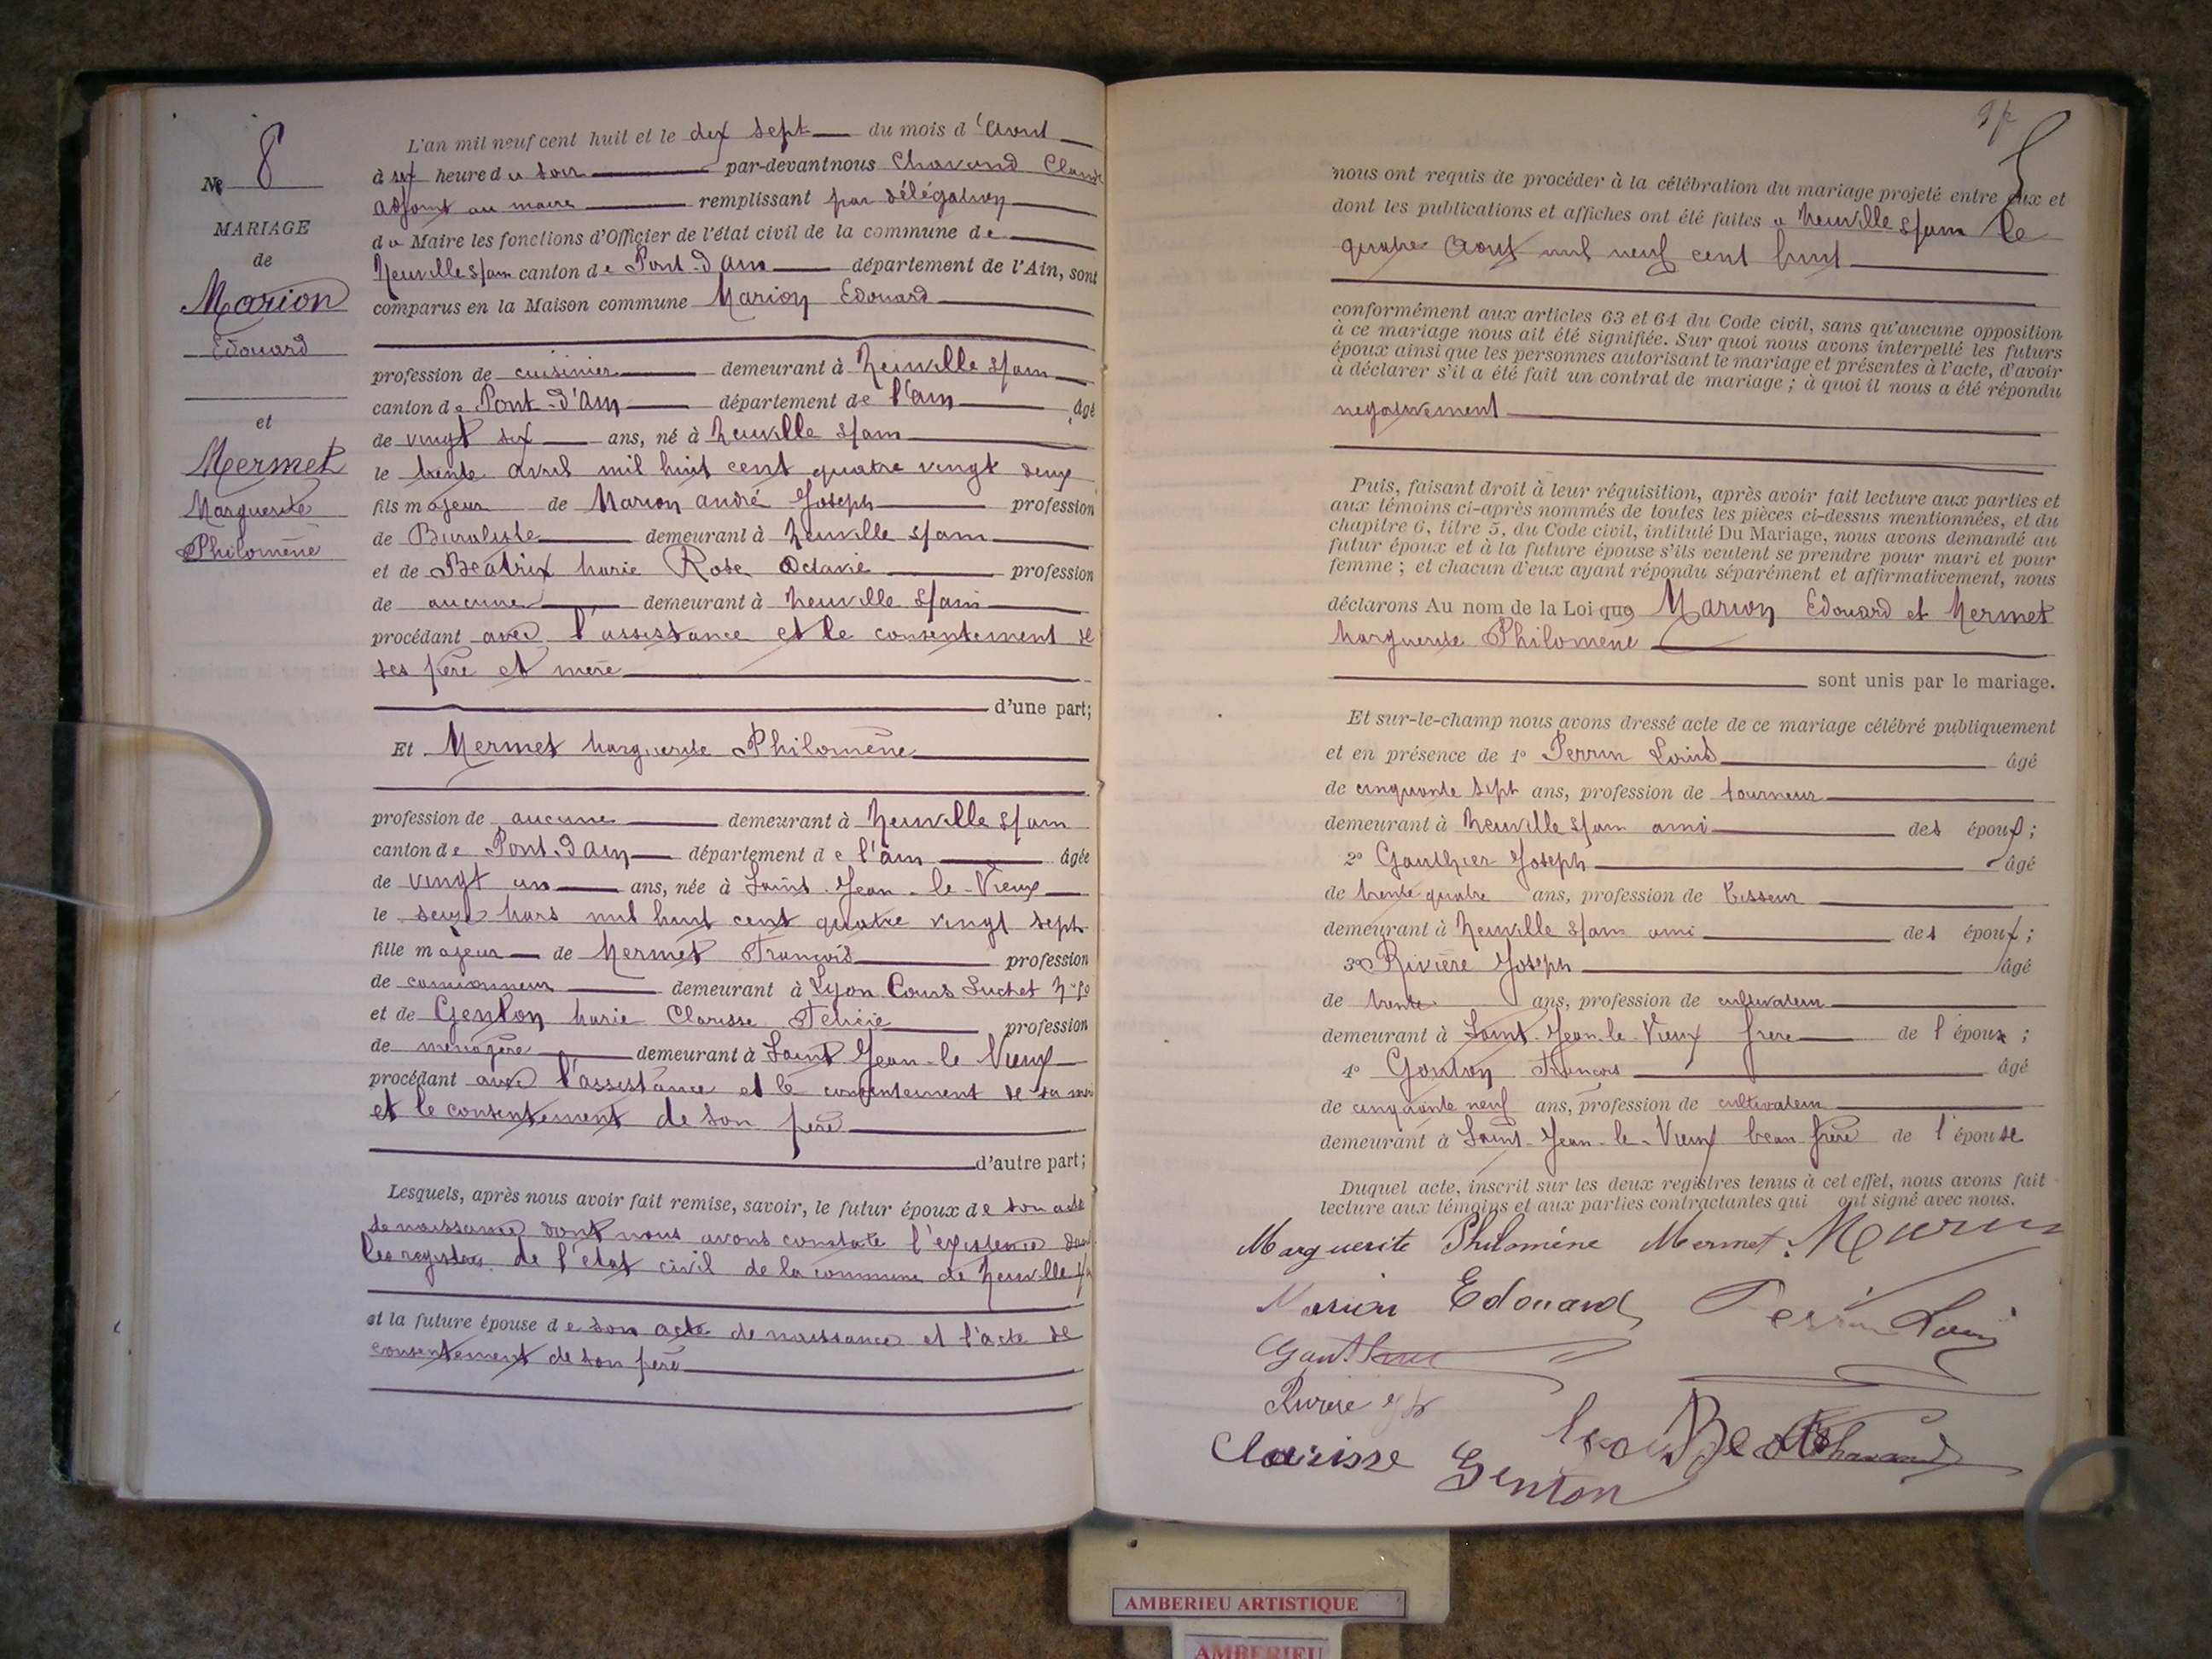 N° 8
MARIAGE
de
Marion
Edouard
et
Mermet
Marguerite
Philomène
L'an mil neuf cent huit et le dix sept du mois d'Aout
à six heure du soir par-devant nous Chavand Claude
adjoint au maire remplissant par délégation
du Maire les fonctions d'Officier de l'état civil de la commune de
Neuville s/ain canton de Pont-d'Ain département de l'Ain, sont
comparus en la Maison commune Marion Edouard
profession de cuisinier demeurant à Neuville s/ain
canton de Pont-d'Ain département de l'ain âgé
de vingt six ans, né à Neuville s/ain
le trente avril mil huit cent quatre vingt deux
fils majeur de Marion andré Joseph profession
de Buraliste demeurant à Neuville s/ain
et de Béatrix Marie Rose Octavie profession
de aucune demeurant à Neuville s/ain
procédant avec l'assistance et le consentement de
ses père et mère
d'une part;
Et Mermet Marguerite Philomène
profession de aucune demeurant à Neuville s/ain
canton de Pont-d'ain département de l'ain âgée
de vingt un ans, née à Saint-Jean-le-Vieux
le seize Mars mil huit cent quatre vingt sept
fille majeur de Mermet François profession
de camionneur demeurant à Lyon Cours Suchet
et de Genton Marie Clarisse Félicie profession
de ménagère demeurant à Saint Jean-le Vieux
procédant avec l'assistance et le consentement de sa
et le consentement de son père
d'autre part;
Lesquels, après nous avoir fait remise, savoir, le futur époux de son acte
de naissance dont nous avons constaté l'existence dans
les registres de l'état civil de la commune de Neuville
et la future épouse de son acte de naissance et l'acte de
consentement de son père
nous ont requis de procéder à la célébration du mariage projeté entre eux et
dont les publications et affiches ont été faites à Neuville s/ain le
quatre Aout mil neuf cent huit
conformément aux articles 63 et 64 du Code civil, sans qu'aucune opposition
à ce mariage nous ait été signifiée. Sur quoi nous avons interpellé les futurs
époux ainsi que les personnes autorisant le mariage et présentes à l'acte, d'avoir
à déclarer s'il a été fait un contrat de mariage ; à quoi il nous a été répondu
négativement
Puis, faisant droit à leur réquisition, après avoir fait lecture aux parties et
aux témoins ci-après nommés de toutes les pièces ci-dessus mentionnées, et du
chapitre 6, titre 5, du Code civil, intitulé Du Mariage, nous avons demandé au
futur époux et à la future épouse s'ils veulent se prendre pour mari et pour
femme ; et chacun d'eux ayant répondu séparément et affirmativement, nous
déclarons Au nom de la Loi que Marion Edouard et Mermet
Marguerite Philomène
sont unis par le mariage.
Et sur-le-champ nous avons dressé acte de ce mariage célébré publiquement
et en présence de 1° Perrin Louis âgé
de cinquante sept ans, profession de tourneur
demeurant à Neuville s/ain ami des époux ;
2° Gauthier Joseph âgé
de trente quatre ans, profession de tisseur
demeurant à Neuville s/ain ami des époux ;
3° Rivière Joseph âgé
de trente ans, profession de cultivateur
demeurant à Saint-Jean-le-Vieux frère de l'époux ;
4° Gonton François âgé
de cinquante neuf ans, profession de cultivateur
demeurant à Saint-Jean-le-Vieux beau frère de l'épouse
Duquel acte, inscrit sur les deux registres tenus à cet effet, nous avons fait
lecture aux témoins et aux parties contractantes qui ont signé avec nous.
Marguerite Philomène Mermet
Marion Edouard Perrin Louis
Clarisse Genton Chavand
AMBERIEU ARTISTIQUE
AMBERIEU